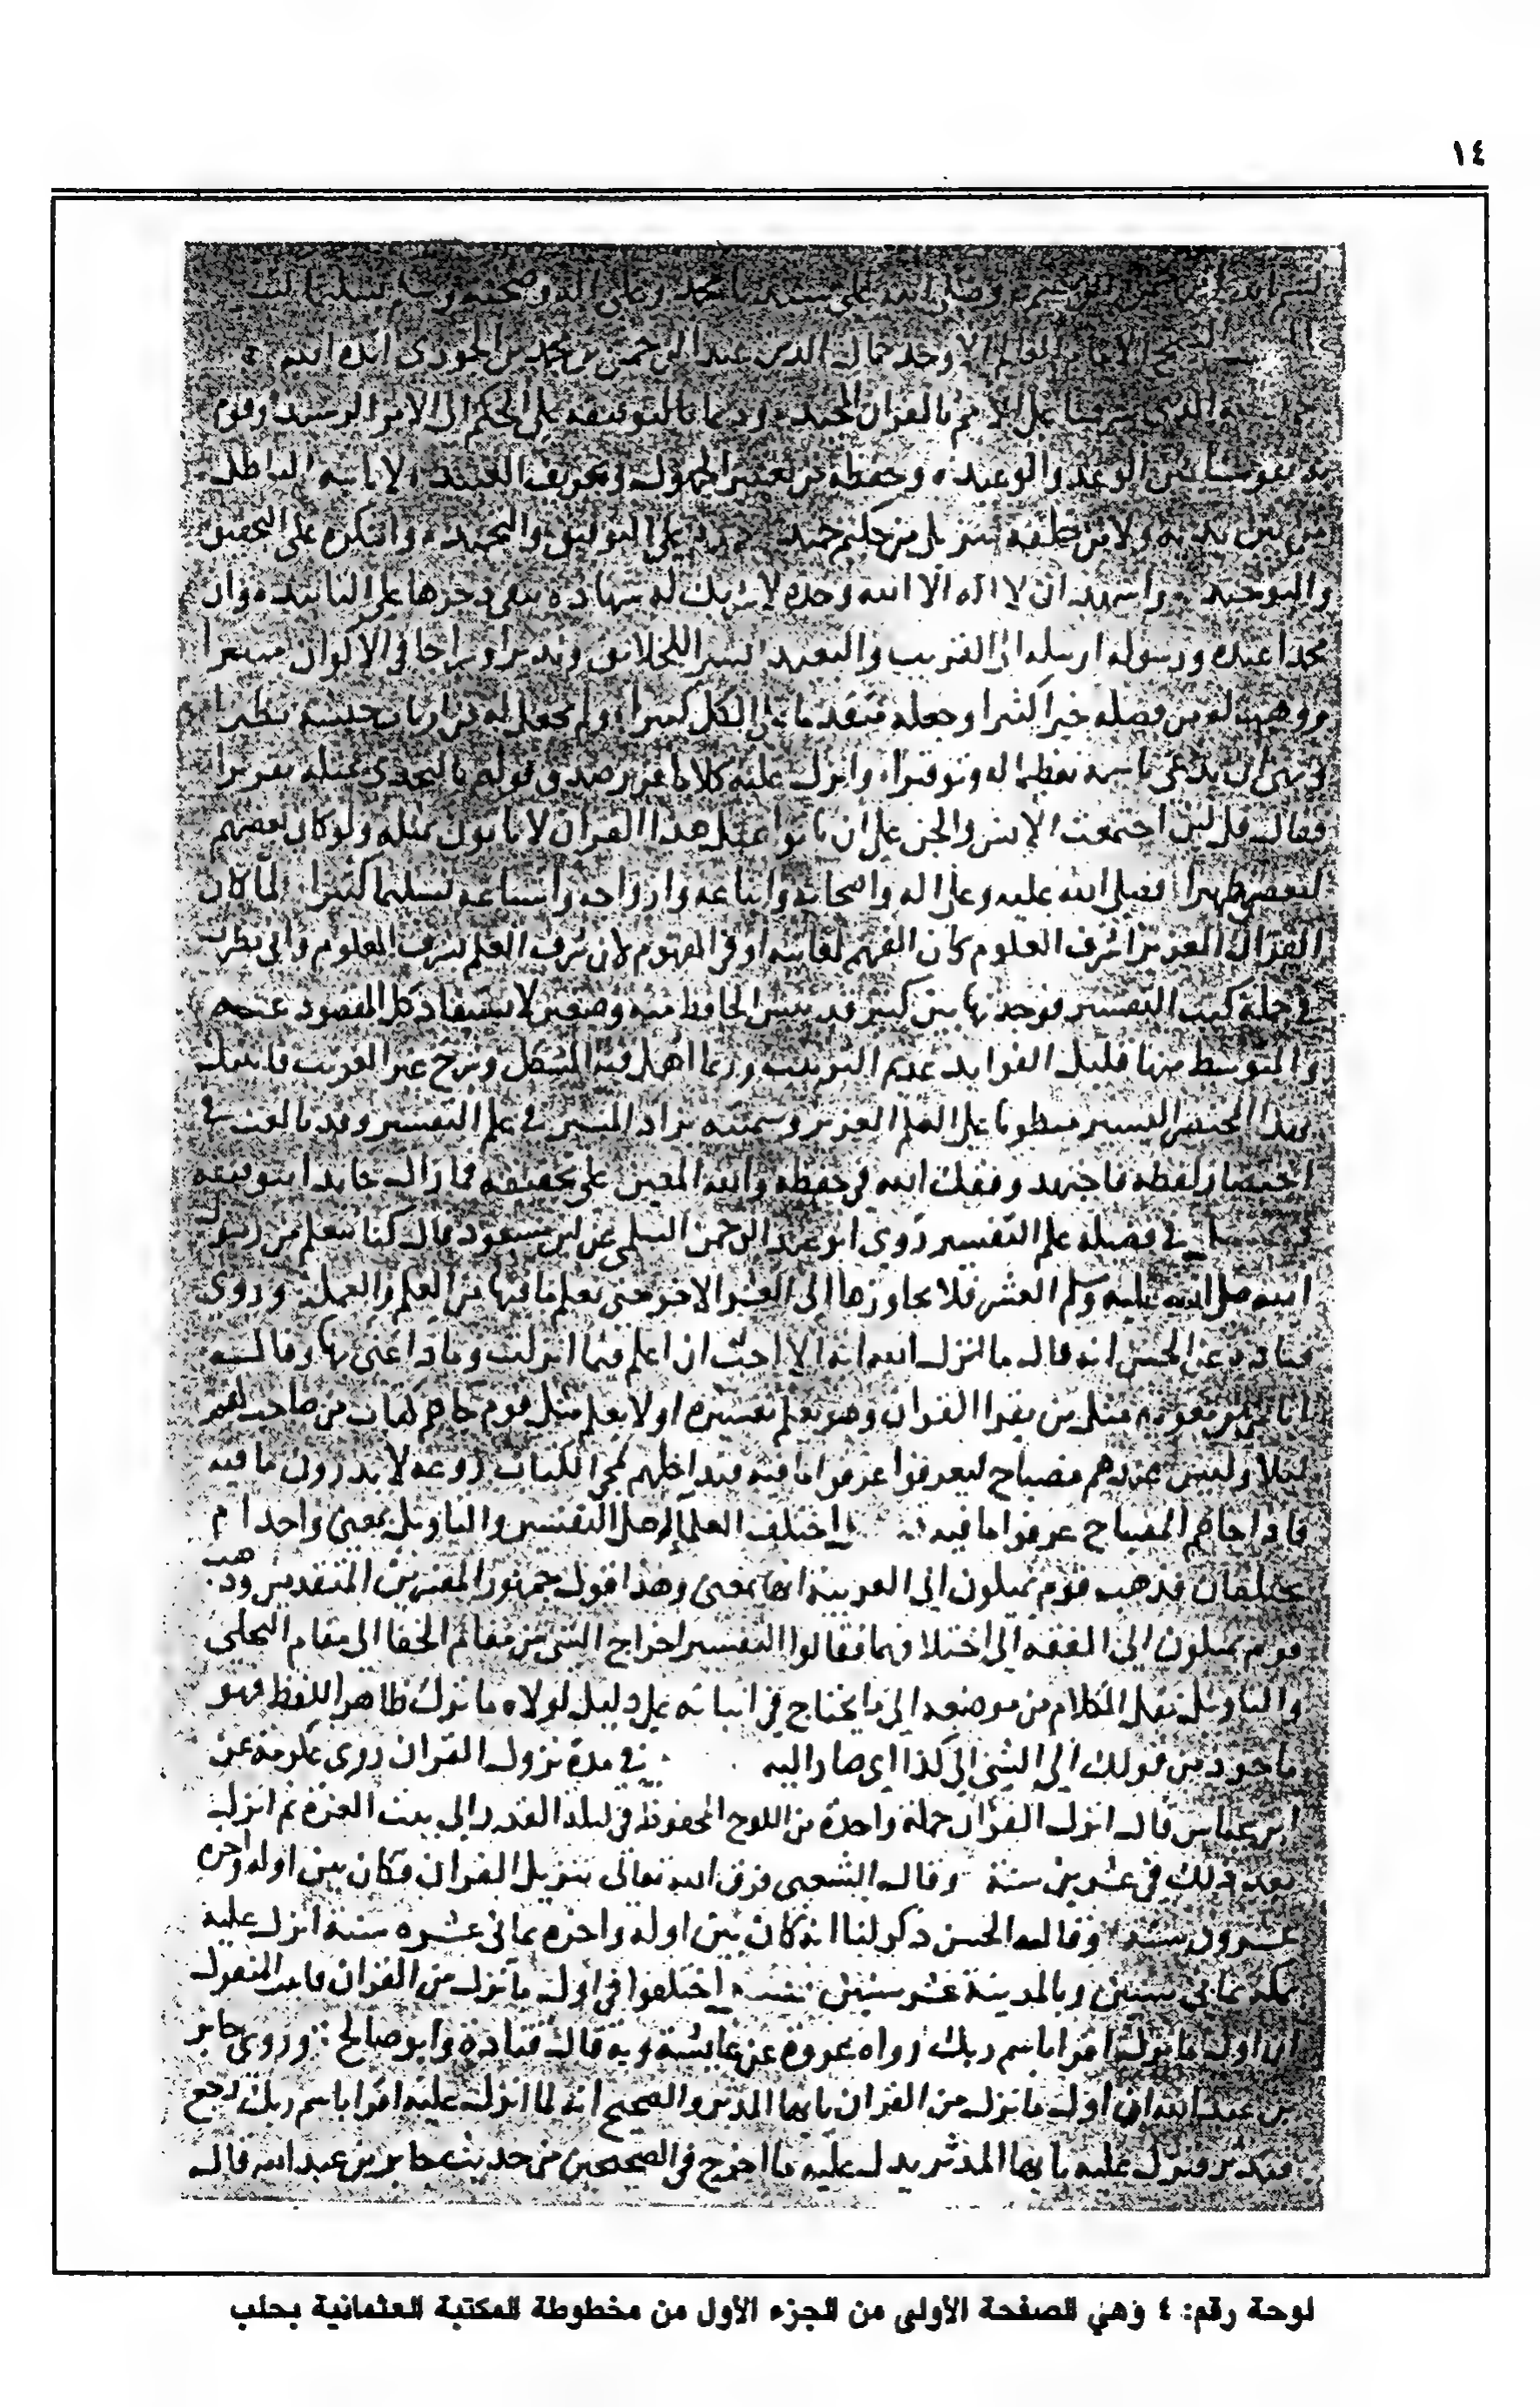 ١٤
بسم الله الرحمن الرحيم وصلى الله على سيدنا محمد وعلى اله وصحبه وسلم تسليما
الشيخ الامام العالم الاوحد جمال الدين عبد الرحمن بن الجوزي ايده الله
الذي شرفنا على الامم بالقران المجيد ودعانا بتوفيقه على الحكم الى الامر الرشيد وقوم
به نفوسنا بين الوعد والوعيد وحفظه من تغيير الجهول وتحريف العنيد لا ياتيه الباطل
من بين يديه ولا من خلفه تنزيل من حكيم حميد على التوفيق والتحميد واشكره على التحقيق
والتوحيد واشهد ان لا اله الا الله وحده لا شريك له شهادة يبقى ذخرها على التابيد وان
محمدا عبده ورسوله ارسله الى القريب والبعيد بشيرا للخلائق ونذيرا وسراجا في الاكوان منيرا
ووهب له من فضله خيرا كثيرا وجعله مقدما على الكل كبيرا ولم يجعل له من ارباب جنسه نظيرا
ونهى ان يدعى باسمه تعظيما له وتوقيرا وانزل عليه كلاما قرر صدق قوله بالتحدي بمثله تقريرا
فقال قل لئن اجتمعت الانس والجن على ان ياتوا بمثل هذا القران لا ياتون بمثله ولو كان بعضهم
لبعض ظهيرا فصلى الله عليه وعلى اله واصحابه واتباعه وازواجه واشياعه تسليما كثيرا لما كان
القران العزيز اشرف العلوم كان الفهم لمعانيه اوفى الفهوم لان شرف العلم بشرف المعلوم واني نظرت
في جملة كتب التفسير فوجدتها بين كبير قد يئس الحافظ منه وصغير لا يستفاد كل المقصود عنه
والمتوسط منها قليل الفوايد عديم الترتيب وربما اهمل فيه المشكل وشرح غير الغريب فاتيتك
بهذا المختصر اليسير منطويا على العلم الغزير وسميته بزاد المسير في علم التفسير وقد بالغت في
اختصار لفظه فاجتهد وفقك الله في حفظه والله المعين على تحقيقه فما زال جايدا بتوفيقه
فصل في فضيلة علم التفسير روى ابو عبد الرحمن السلمي عن ابن مسعود قال كنا نتعلم من رسول
الله صلى الله عليه وسلم العشر فلا نجاوزها الى العشر الاخر حتى نعلم ما فيها من العلم والعمل وروى
قتادة عن الحسن انه قال ما انزل الله اية الا احب ان اعلم فيما انزلت وماذا عنى بها وقال
اياس بن معوية مثل من يقرا القران وهو يعلم تفسيره او لا يعلم مثل قوم جاهم كتاب من صاحب لهم
ليلا وليس عندهم مصباح ليعرفوا ما فيه فتداخلهم لمجي الكتاب روعة لا يدرون ما فيه
فاذا جاهم المصباح عرفوا ما فيه اختلف العلما هل التفسير والتاويل بمعنى واحد ام
يختلفان فذهب قوم يميلون الى العربية انهما بمعنى وهذا قول جمهور المفسرين المتقدمين وذهب
قوم يميلون الى الفقه الى اختلافهما فقالوا التفسير اخراج الشي من مقام الخفا الى مقام التجلي
والتاويل نقل الكلام من موضعه الى ما يحتاج في اثباته على دليل لولاه ما ترك ظاهر اللفظ فهو
ماخوذ من قولك ال الشي الى كذا اي صار اليه في مدة نزول القران روى عكرمة عن
ابن عباس قال انزل القران جملة واحدة من اللوح المحفوظ في ليلة القدر الى بيت العزة ثم انزل
بعد ذلك في عشرين سنة وقال الشعبي فرق الله تعالى تنزيل القران فكان بين اوله واخره
عشرون سنة وقال الحسن ذكر لنا انه كان بين اوله واخره ثماني عشره سنة انزل عليه
بمكة ثماني سنين وبالمدينة عشر سنين اختلفوا في اول ما نزل من القران فاثبت المنقول
ان اول ما نزل اقرا باسم ربك رواه عروة عن عايشة وبه قال قتادة وابو صالح وروي عن جابر
بن عبد الله ان اول ما نزل من القران يا يها المدثر والصحيح انه لما انزل عليه اقرا باسم ربك رجع
فتدثر فنزل عليه يا يها المدثر يدل عليه ما اخرج في الصحيحين من حديث جابر بن عبد الله قال
لوحة رقم: ٤ وهي الصفحة الأولى من الجزء الأول من مخطوطة المكتبة العثمانية بحلب